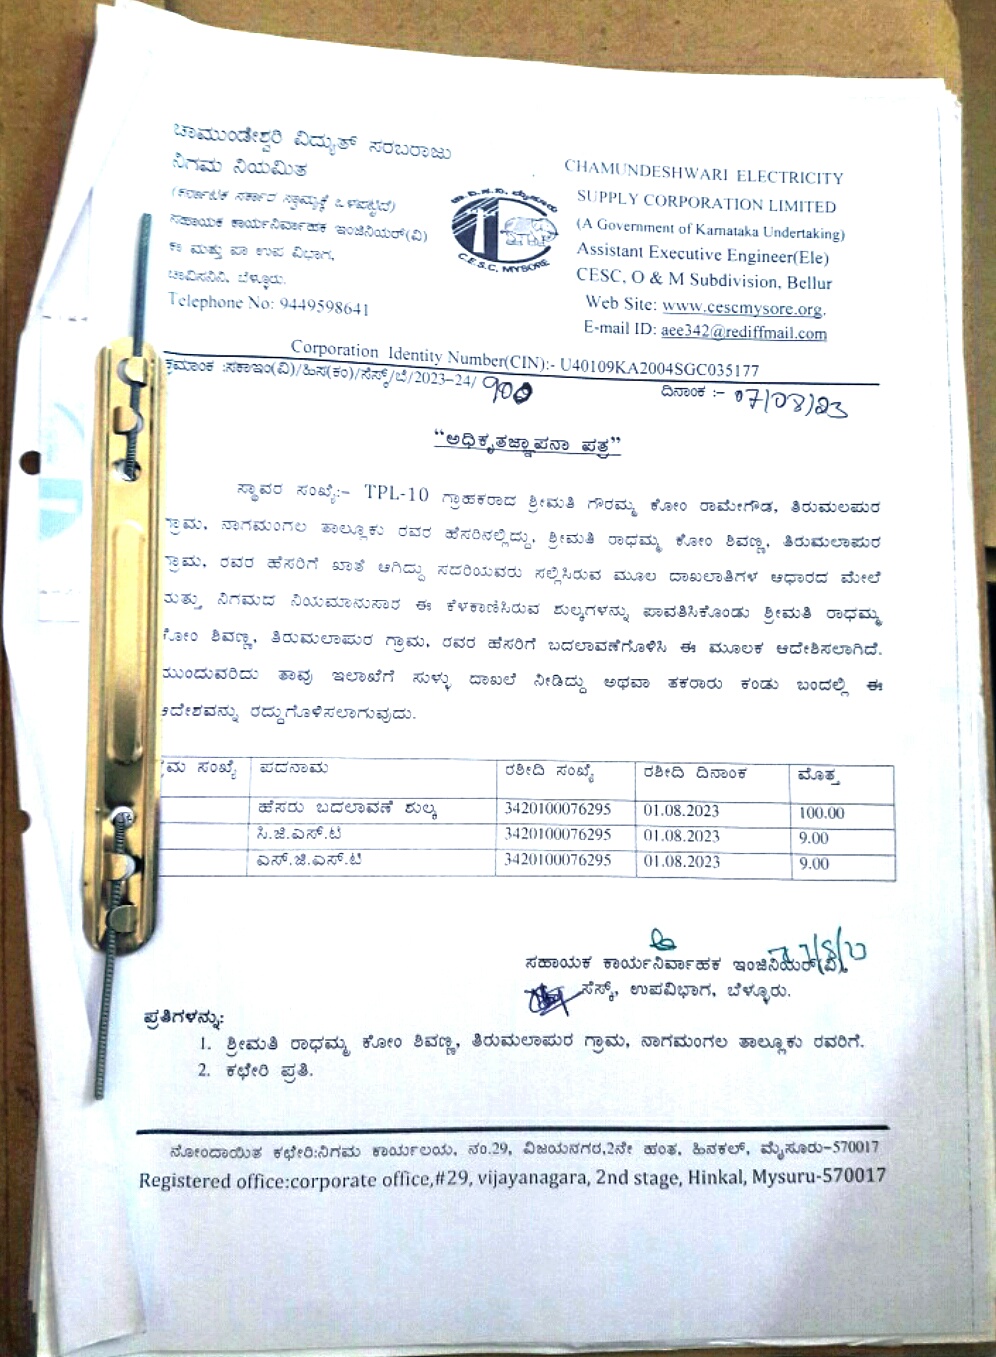 ಚಾಮುಂಡೇಶ್ವರಿ ವಿದ್ಯುತ್ ಸರಬರಾಜು
ನಿಗಮ ನಿಯಮಿತ
(ಕರ್ನಾಟಕ ಸರ್ಕಾರ ಸ್ವಾಮ್ಯಕ್ಕೆ ಒಳಪಟ್ಟಿದೆ)
ಸಹಾಯಕ ಕಾರ್ಯನಿರ್ವಾಹಕ ಇಂಜಿನಿಯರ್(ವಿ)
ಕಾ ಮತ್ತು ಪಾ ಉಪ ವಿಭಾಗ,
ಚಾವಿಸನಿನಿ, ಬೆಳ್ಳೂರು.
Telephone No: 9449598641
ಚಾ.ವಿ.ಸ.ನಿ. ಮೈಸೂರು
C.E.S.C. MYSORE
CHAMUNDESHWARI ELECTRICITY
SUPPLY CORPORATION LIMITED
(A Government of Karnataka Undertaking)
Assistant Executive Engineer(Ele)
CESC, O & M Subdivision, Bellur
Web Site: www.cescmysore.org.
E-mail ID: aee342@rediffmail.com
Corporation Identity Number(CIN):- U40109KA2004SGC035177
ಕ್ರಮಾಂಕ :ಸಕಾಇಂ(ವಿ)/ಹಿಸ(ಕಂ)/ಸೆಸ್ಕ್/ಬೆ/2023-24/ 900 ದಿನಾಂಕ :- 07/08/23
“ಅಧಿಕೃತಜ್ಞಾಪನಾ ಪತ್ರ”
ಸ್ಥಾವರ ಸಂಖ್ಯೆ:- TPL-10 ಗ್ರಾಹಕರಾದ ಶ್ರೀಮತಿ ಗೌರಮ್ಮ ಕೋಂ ರಾಮೇಗೌಡ, ತಿರುಮಲಪುರ
ಗ್ರಾಮ, ನಾಗಮಂಗಲ ತಾಲ್ಲೂಕು ರವರ ಹೆಸರಿನಲ್ಲಿದ್ದು, ಶ್ರೀಮತಿ ರಾಧಮ್ಮ ಕೋಂ ಶಿವಣ್ಣ, ತಿರುಮಲಾಪುರ
ಗ್ರಾಮ, ರವರ ಹೆಸರಿಗೆ ಖಾತೆ ಆಗಿದ್ದು ಸದರಿಯವರು ಸಲ್ಲಿಸಿರುವ ಮೂಲ ದಾಖಲಾತಿಗಳ ಆಧಾರದ ಮೇಲೆ
ಮತ್ತು ನಿಗಮದ ನಿಯಮಾನುಸಾರ ಈ ಕೆಳಕಾಣಿಸಿರುವ ಶುಲ್ಕಗಳನ್ನು ಪಾವತಿಸಿಕೊಂಡು ಶ್ರೀಮತಿ ರಾಧಮ್ಮ
ಕೋಂ ಶಿವಣ್ಣ, ತಿರುಮಲಾಪುರ ಗ್ರಾಮ, ರವರ ಹೆಸರಿಗೆ ಬದಲಾವಣೆಗೊಳಿಸಿ ಈ ಮೂಲಕ ಆದೇಶಿಸಲಾಗಿದೆ.
ಮುಂದುವರಿದು ತಾವು ಇಲಾಖೆಗೆ ಸುಳ್ಳು ದಾಖಲೆ ನೀಡಿದ್ದು ಅಥವಾ ತಕರಾರು ಕಂಡು ಬಂದಲ್ಲಿ ಈ
ಆದೇಶವನ್ನು ರದ್ದುಗೊಳಿಸಲಾಗುವುದು.
ಕ್ರಮ ಸಂಖ್ಯೆ ಪದನಾಮ ರಶೀದಿ ಸಂಖ್ಯೆ ರಶೀದಿ ದಿನಾಂಕ ಮೊತ್ತ
ಹೆಸರು ಬದಲಾವಣೆ ಶುಲ್ಕ 3420100076295 01.08.2023 100.00
ಸಿ.ಜಿ.ಎಸ್.ಟಿ 3420100076295 01.08.2023 9.00
ಎಸ್.ಜಿ.ಎಸ್.ಟಿ 3420100076295 01.08.2023 9.00
ಸಹಾಯಕ ಕಾರ್ಯನಿರ್ವಾಹಕ ಇಂಜಿನಿಯರ್(ವಿ),
ಸೆಸ್ಕ್, ಉಪವಿಭಾಗ, ಬೆಳ್ಳೂರು.
ಪ್ರತಿಗಳನ್ನು:
1. ಶ್ರೀಮತಿ ರಾಧಮ್ಮ ಕೋಂ ಶಿವಣ್ಣ, ತಿರುಮಲಾಪುರ ಗ್ರಾಮ, ನಾಗಮಂಗಲ ತಾಲ್ಲೂಕು ರವರಿಗೆ.
2. ಕಛೇರಿ ಪ್ರತಿ.
ನೋಂದಾಯಿತ ಕಛೇರಿ:ನಿಗಮ ಕಾರ್ಯಲಯ, ನಂ.29, ವಿಜಯನಗರ,2ನೇ ಹಂತ, ಹಿನಕಲ್, ಮೈಸೂರು-570017
Registered office:corporate office,#29, vijayanagara, 2nd stage, Hinkal, Mysuru-570017